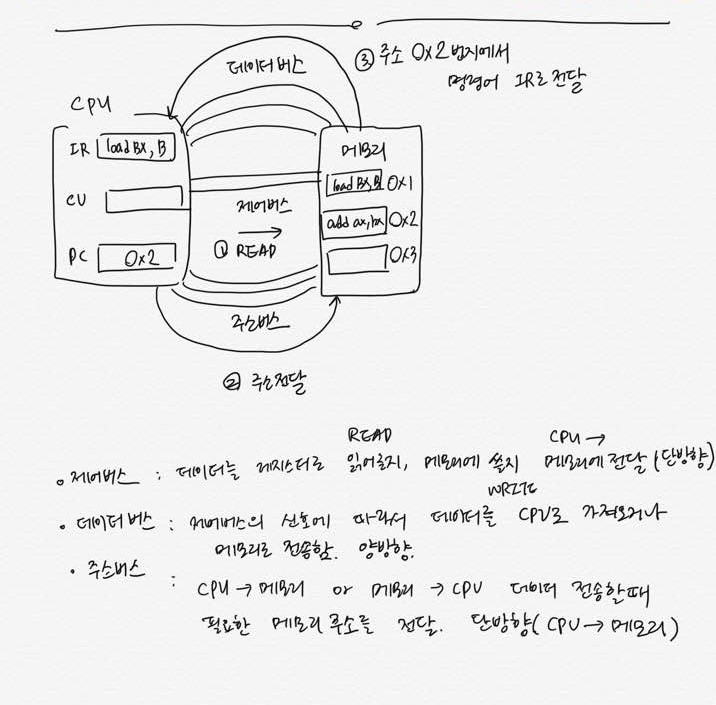 데이터버스
③ 주소 0x2번지에서
명령어 IR로 전달
CPU
IR load BX, B
메모리
load BX, B 0x1
CU
제어버스
add ax, bx 0x2
① READ
PC 0x2
0x3
주소버스
② 주소전달
READ
CPU →
• 제어버스 : 데이터를 레지스터로 읽어올지, 메모리에 쓸지 메모리에 전달 (단방향)
WRITE
• 데이터버스 : 제어버스의 신호에 따라서 데이터를 CPU로 가져오거나
메모리로 전송함. 양방향.
• 주소버스 :
CPU → 메모리 or 메모리 → CPU 데이터 전송할때
필요한 메모리 주소를 전달. 단방향( CPU → 메모리 )